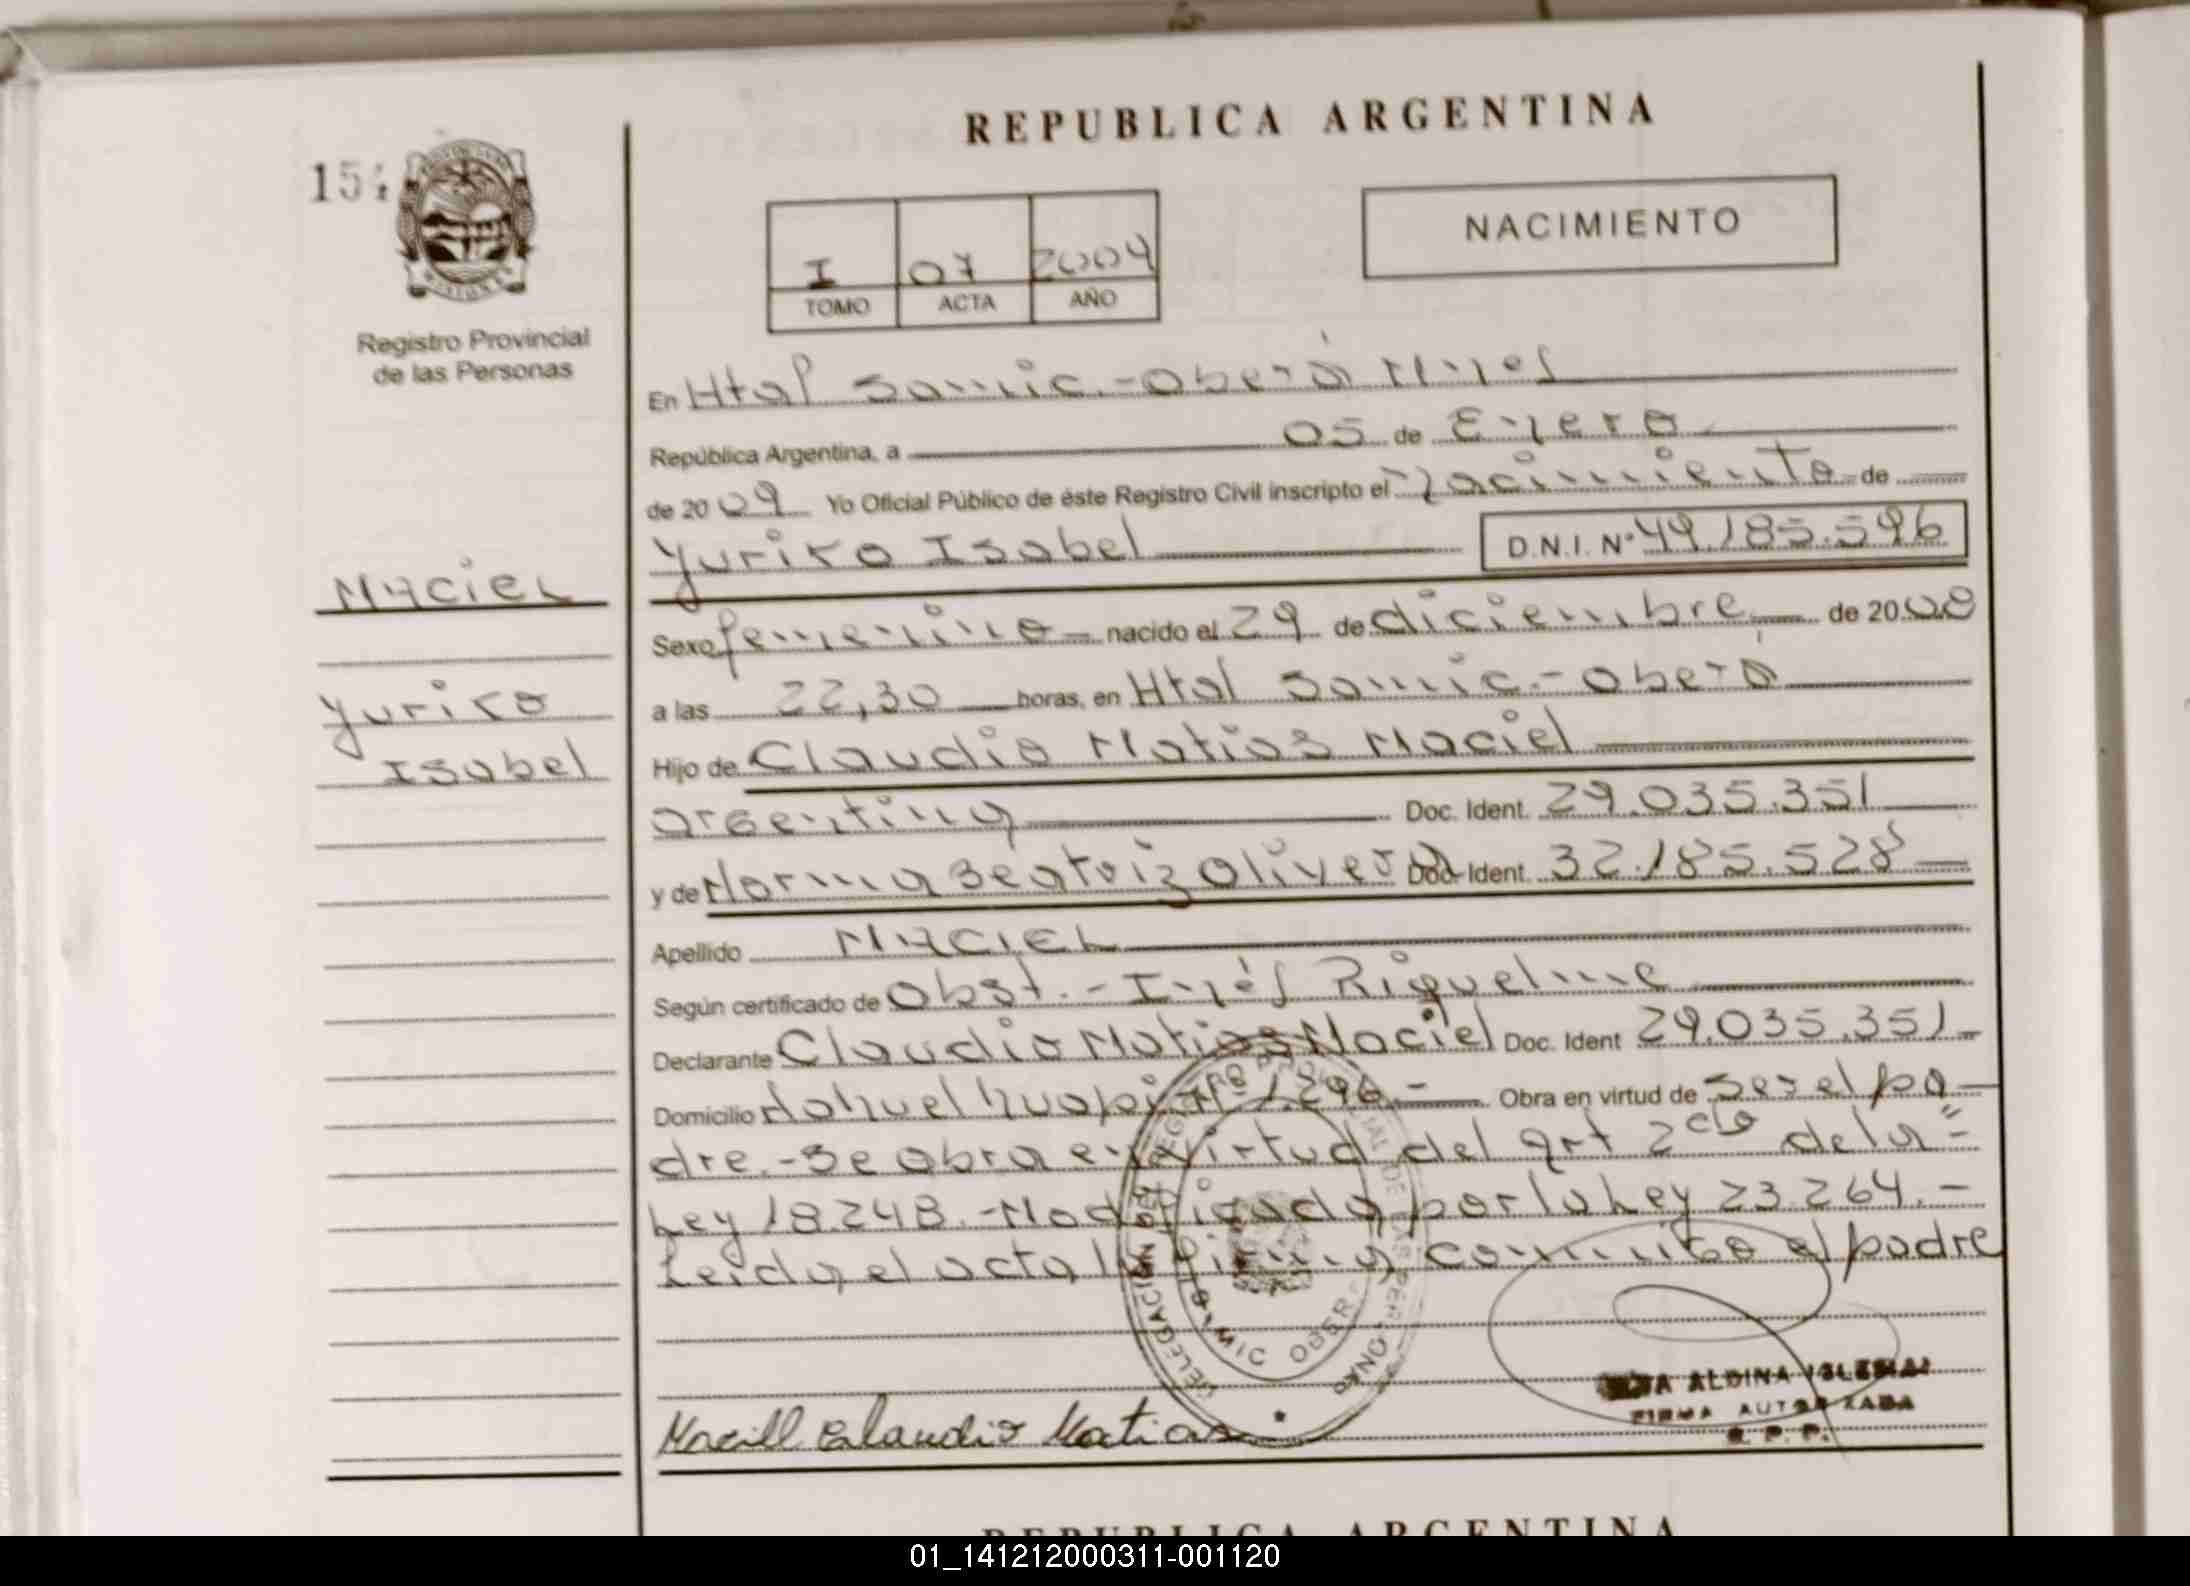 REPUBLICA ARGENTINA
15
NACIMIENTO
I 07 2009
TOMO ACTA AÑO
Registro Provincial
de las Personas
En Htal Samic.-Oberá Mnes
República Argentina, a 05 de Enero
de 2009 Yo Oficial Público de éste Registro Civil inscripto el nacimiento de
Yuriko Isabel D.N.I. Nº 49.185.596
MACIEL
Yuriko
Isabel
Sexo femenino nacido el 29 de diciembre de 2008
a las 22,30 horas, en Htal Samic.-Oberá
Hijo de Claudio Matias Maciel
argentina Doc. Ident. 29.035.351
y de Norma Beatriz Olivera Doc. Ident. 32.185.528
Apellido MACIEL
Según certificado de Obst.- Inés Riquelme
Declarante Claudio Matias Maciel Doc. Ident 29.035.351.-
Domicilio Nahuel huapi Nº 1.296.- Obra en virtud de ser el pa-
dre.-Se obra en virtud del art 2do de la =
Ley 18.248.-Modificada por la Ley 23.264.-
Leida el acta la firma conmigo el padre
DELEGACIÓN DEL REGISTRO PROVINCIAL DE LAS PERSONAS
OBERA
Maciell Claudio Matias
ALDINA IGLESIAS
FIRMA AUTORIZADA
R. P. P.
REPUBLICA ARGENTINA
01_141212000311-001120